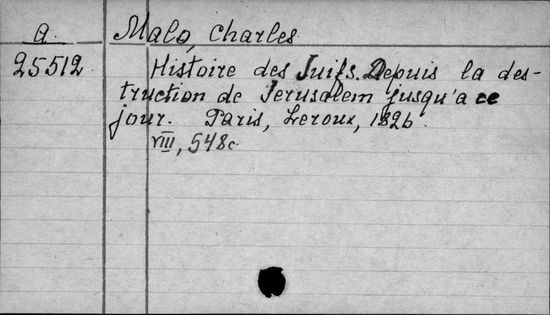 a. Malo, Charles
25512. Histoire des Juifs. Depuis la des-
truction de Jerusalem jusqu'a ce
jour. Paris, Leroux, 1826.
VIII, 548c.